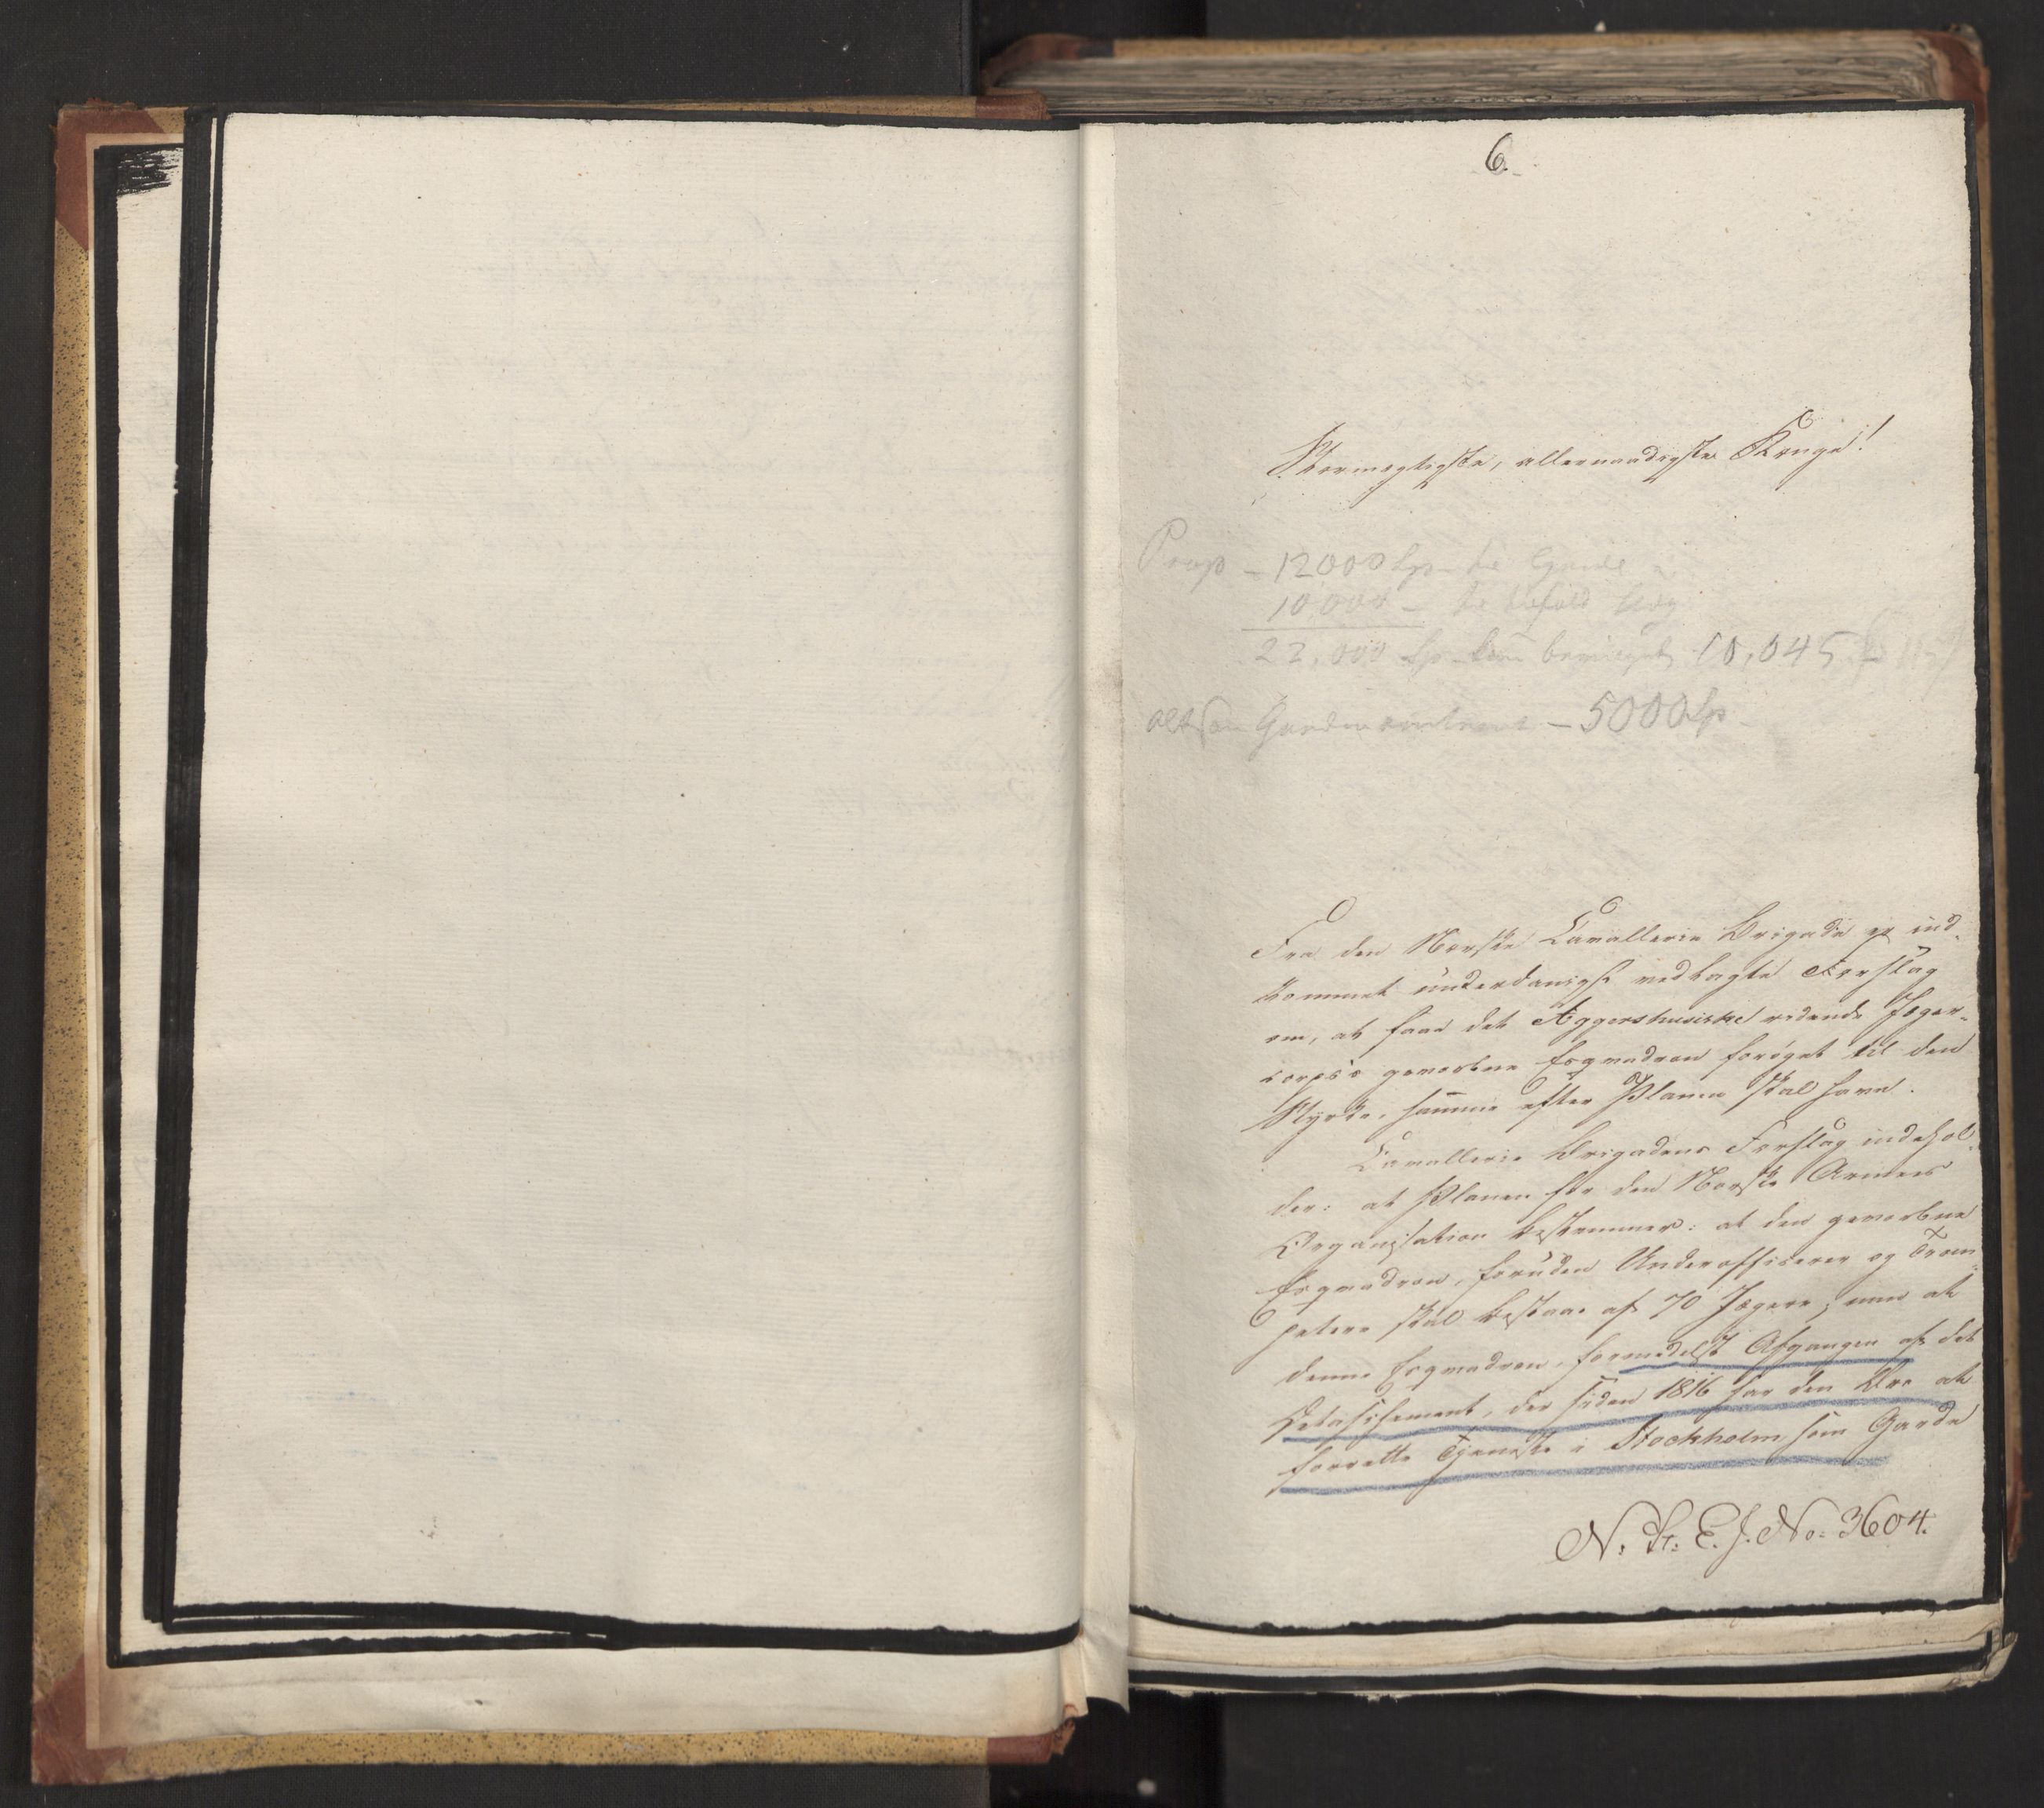 6.
Stormægtigste, allernaadigste Konge!
Prop – 12000 Sp – Garde
10,000 –
22,000 Sp 10,045
altsaa Garden omtrent – 5000 Sp –
Fra den Norske Cavallerie Brigade er ind-
kommet underdanigst vedlagte Forslag
om, at faae det Aggershusiske ridende Jæger-
corps's gevorbne Esquadron forøget til den
Styrke, samme efter Planen skal have.
Cavallerie Brigadens Forslag indehol-
der: at Planen for den Norske Armees
Organisation bestemmer: at den gevorbne
Esquadron, foruden Underofficerer og Trom-
petere skal bestaae af 70 Jægere; men at
denne Esquadron, formedelst Afgangen af det
Detaschement, der siden 1816 har den Ære at
forrette Tjeneste i Stockholm som Garde
N. St. E. J. No. 3604.